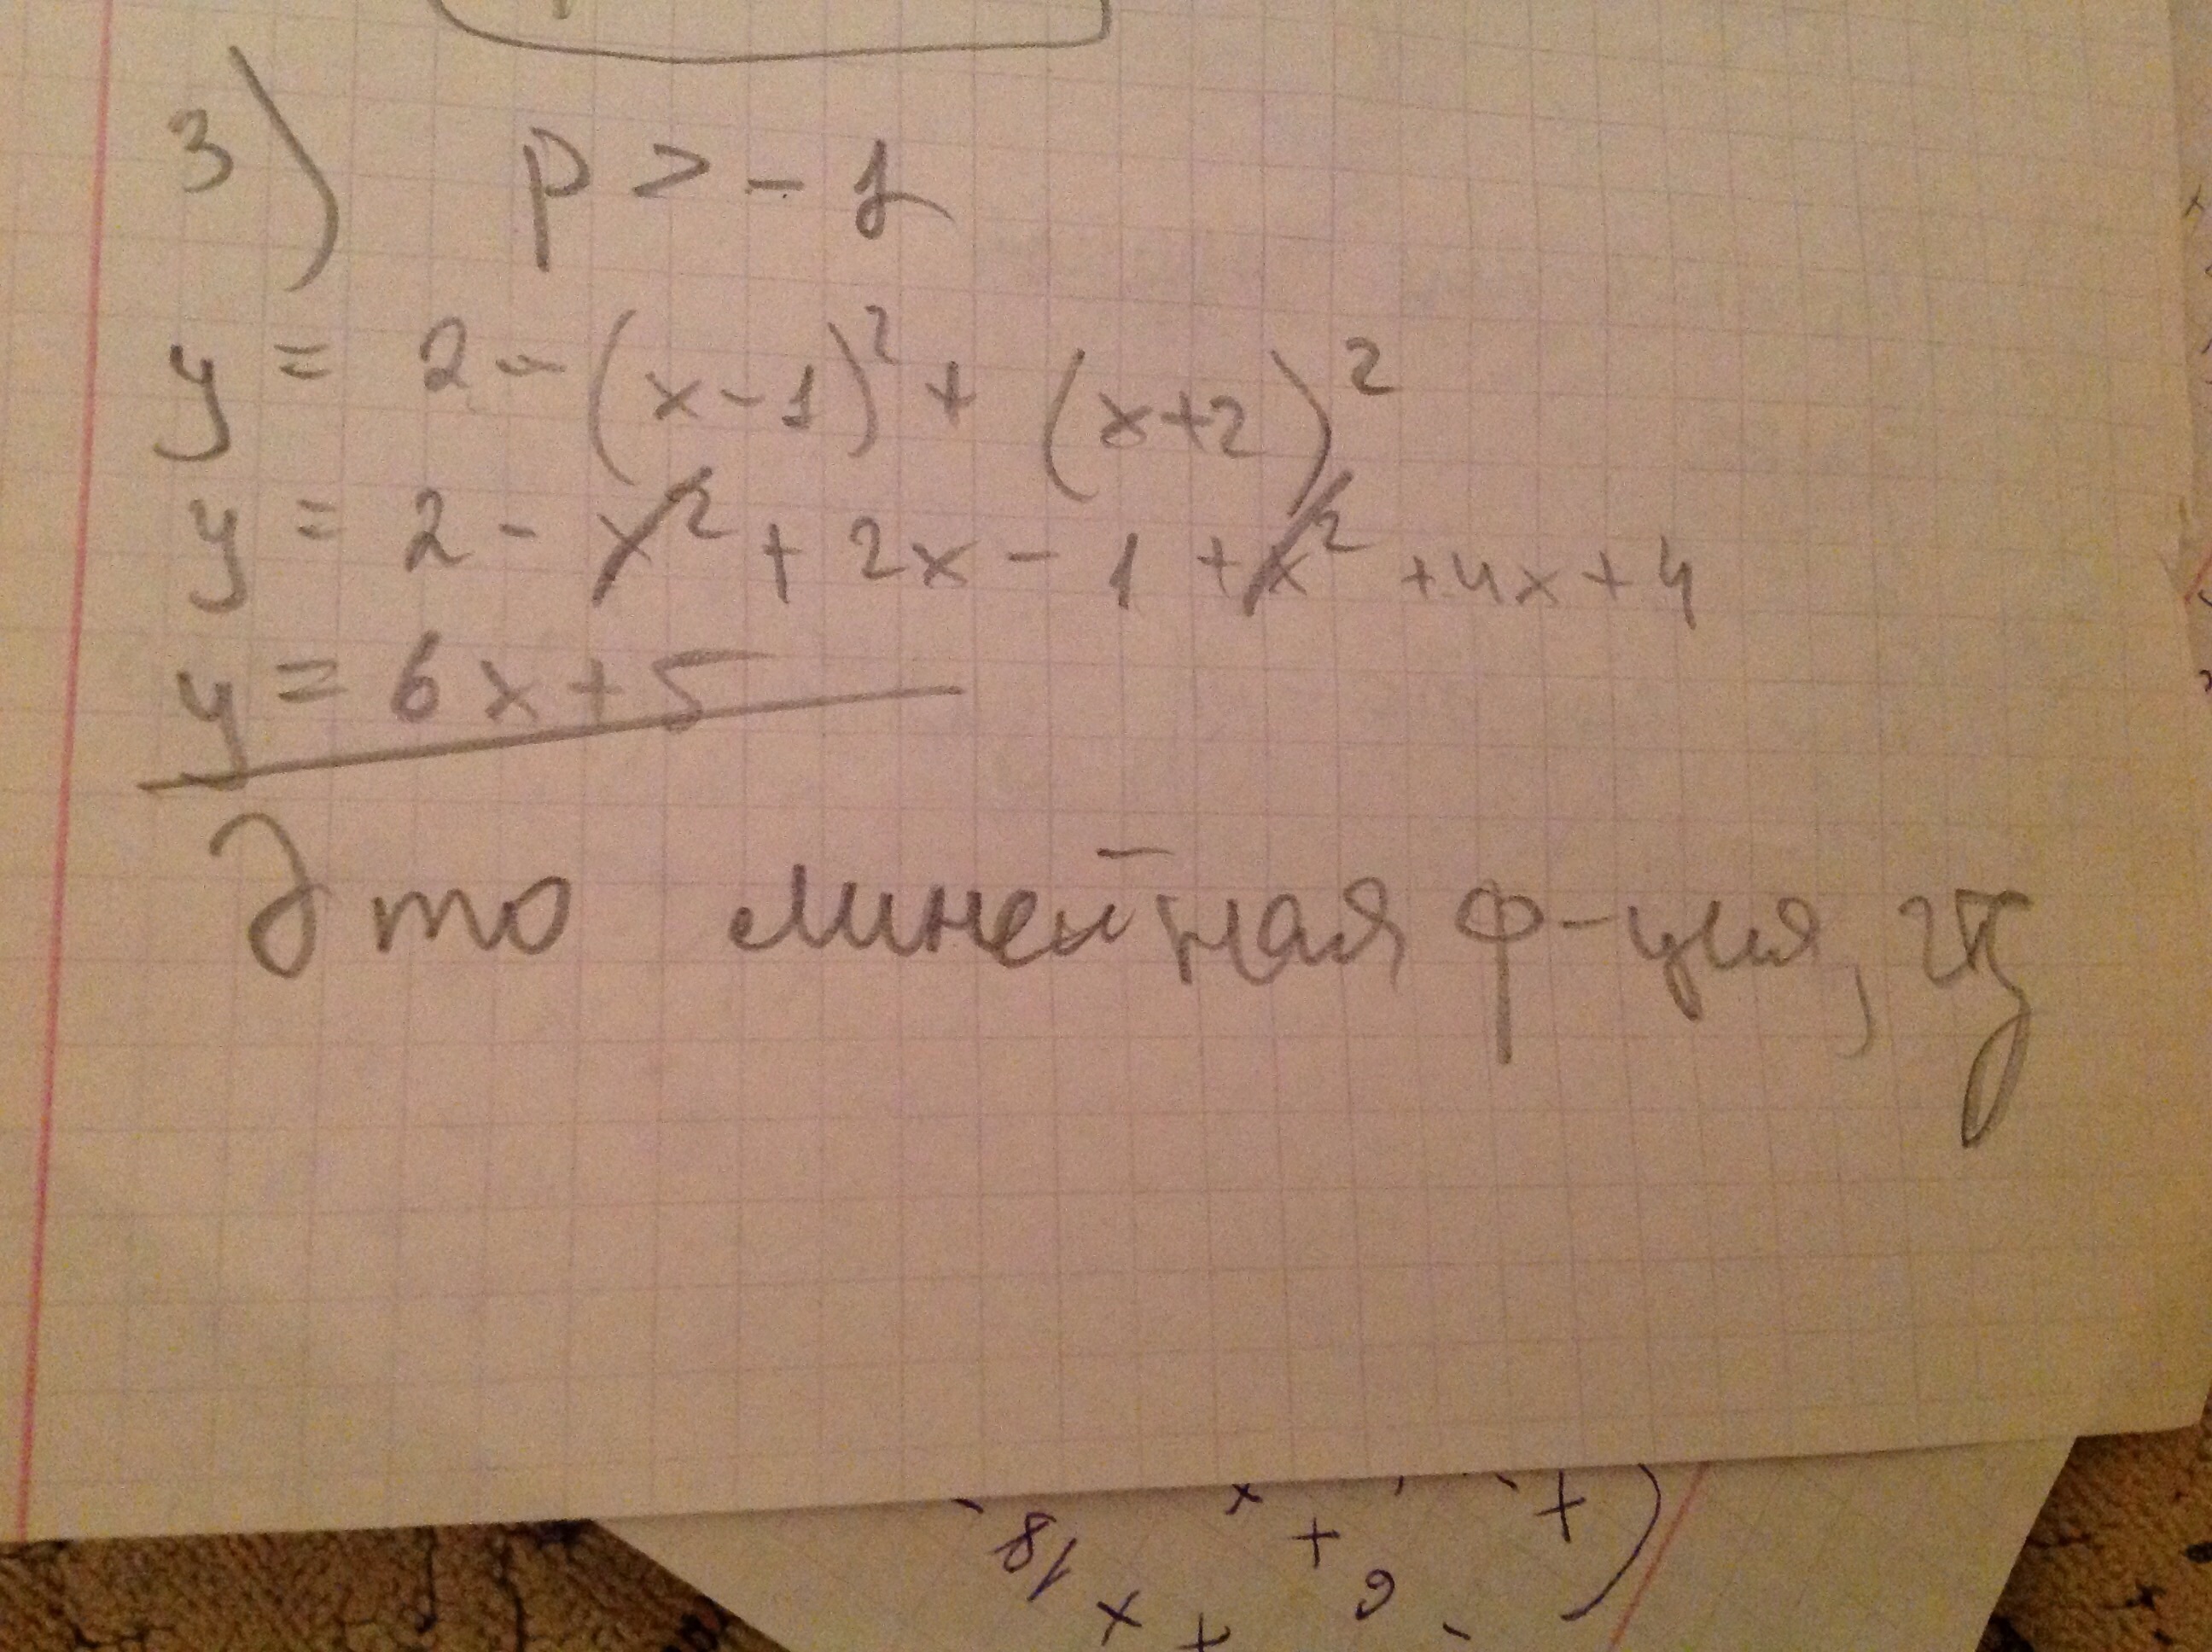 3) p > -1
y = 2 - (x-1)² + (x+2)²
y = 2 - x² + 2x - 1 + x² + 4x + 4
y = 6x + 5
Это линейная ф-ция,
18